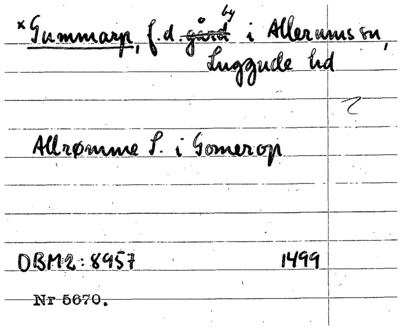 by
× Gummarp, f.d. gård i Allerums sn,
Luggude hd
Allrømme S. i Gomerop
DBM2:8957 1499
Nr 5670.